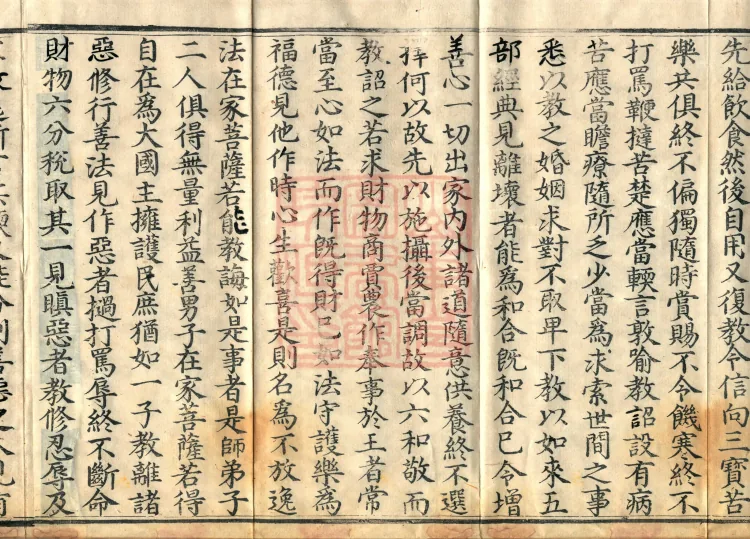 先給飲食然後自用又復教令信向三寶苦
樂共俱終不偏獨隨時賞賜不令饑寒終不
打罵鞭撻苦楚應當輭言敦喻教詔設有病
苦應當瞻療隨所乏少當為求索世間之事
悉以教之婚姻求對不取卑下教以如來五
部經典見離壞者能為和合既和合已令增
善心一切出家內外諸道隨意供養終不選
擇何以故先以施攝後當調故以六和敬而
教詔之若求財物商賈農作奉事於王者常
當至心如法而作既得財已如法守護樂為
福德見他作時心生歡喜是則名為不放逸
法在家菩薩若能教誨如是事者是師弟子
二人俱得無量利益善男子在家菩薩若得
自在為大國主擁護民庶猶如一子教離諸
惡修行善法見作惡者撾打罵辱終不斷命
財物六分稅取其一見瞋惡者教修忍辱及